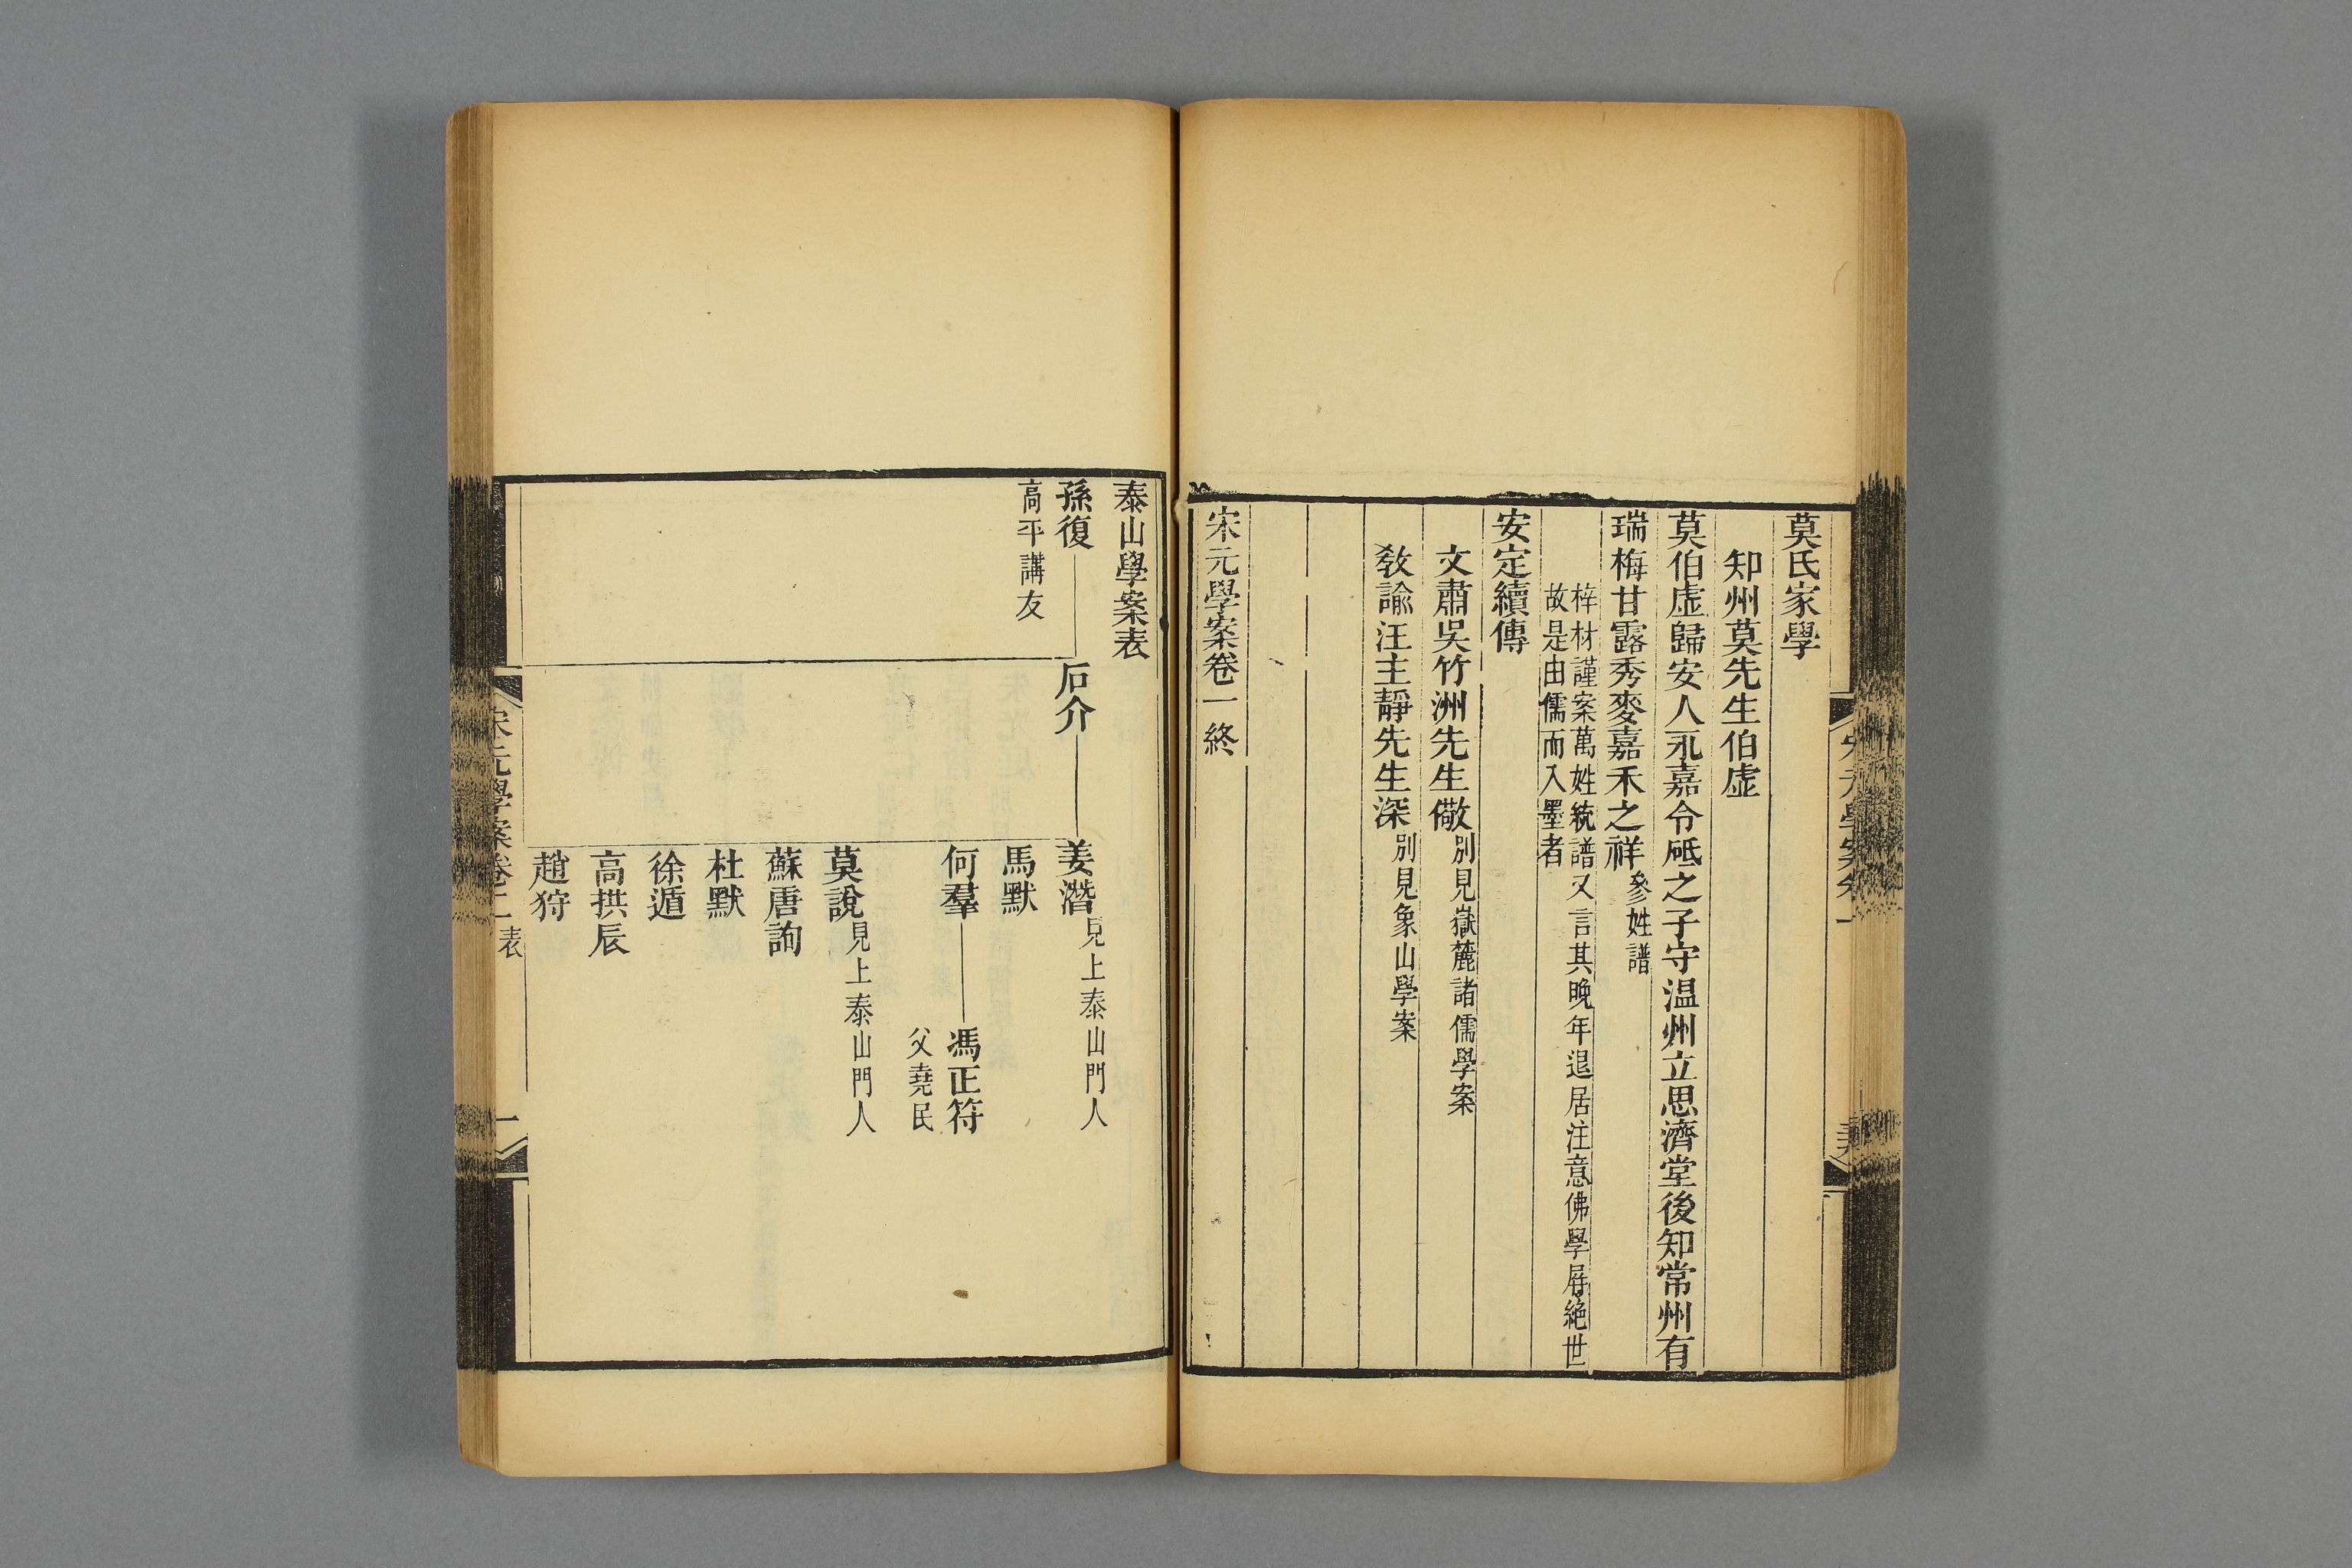 莫氏家學
知州莫先生伯虛
莫伯虛歸安人永嘉令砥之子守温州立思濟堂後知常州有
瑞梅甘露秀麥嘉禾之祥參姓譜
梓材謹案萬姓統譜又言其晚年退居注意佛學屏絶世
故是由儒而入墨者
安定續傳
文肅吳竹洲先生儆別見嶽麓諸儒學案
敎諭汪主靜先生深別見象山學案
宋元學案卷一終
泰山學案表
孫復
高平講友
石介
姜潛見上泰山門人
馬默
何羣
馮正符
父堯民
莫說見上泰山門人
蘇唐詢
杜默
徐遁
高拱辰
趙狩
宋元學案卷二表
一